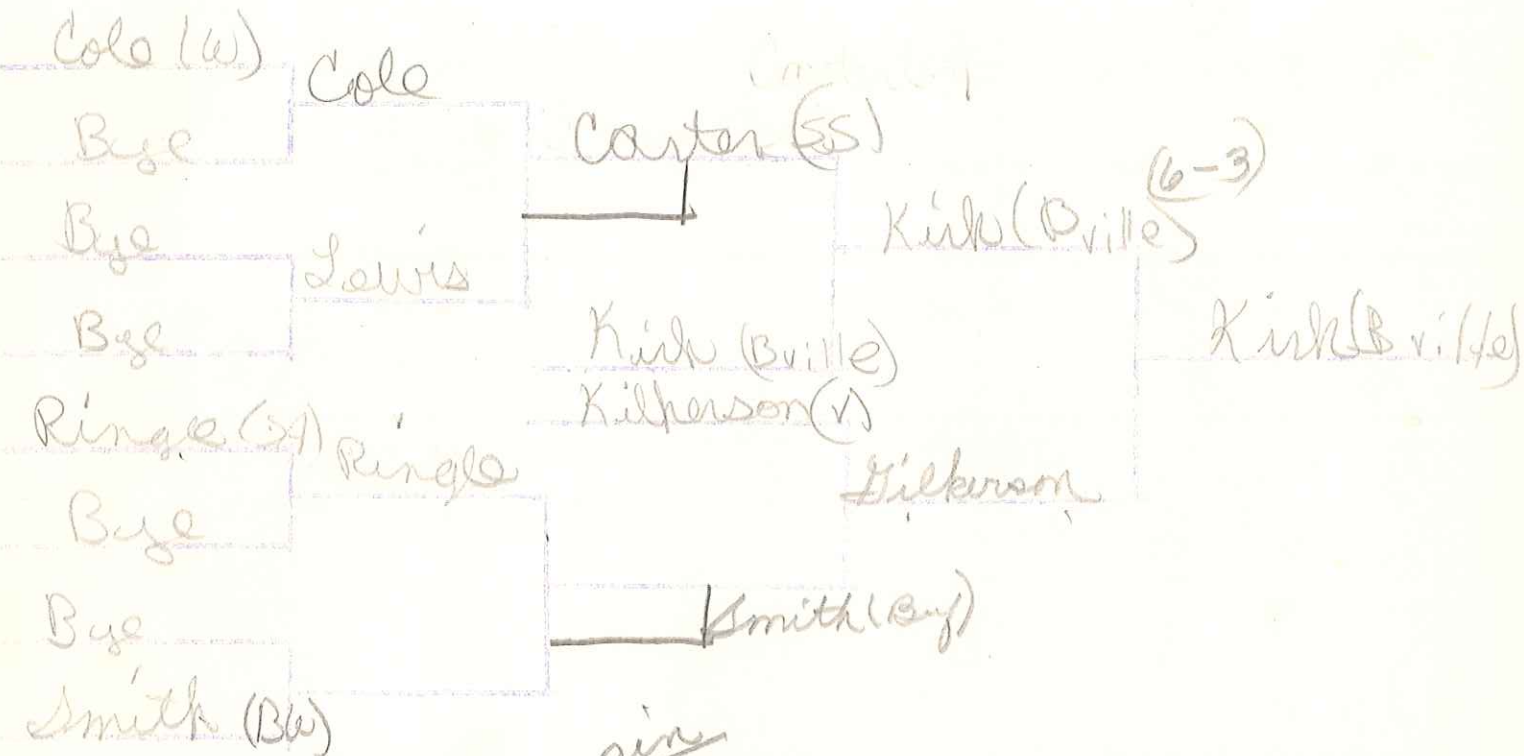 Cole (W)
Bye
Bye
Bye
Ringle
Bye
Bye
Smith (BW)
Cole
Lewis
Ringle
Carter (SS)
Kirk (Bville)
Kilherson (V)
Smith (Buf)
Kirk (Bville)
(6-3)
Gilkerson
Kirk (Bville)